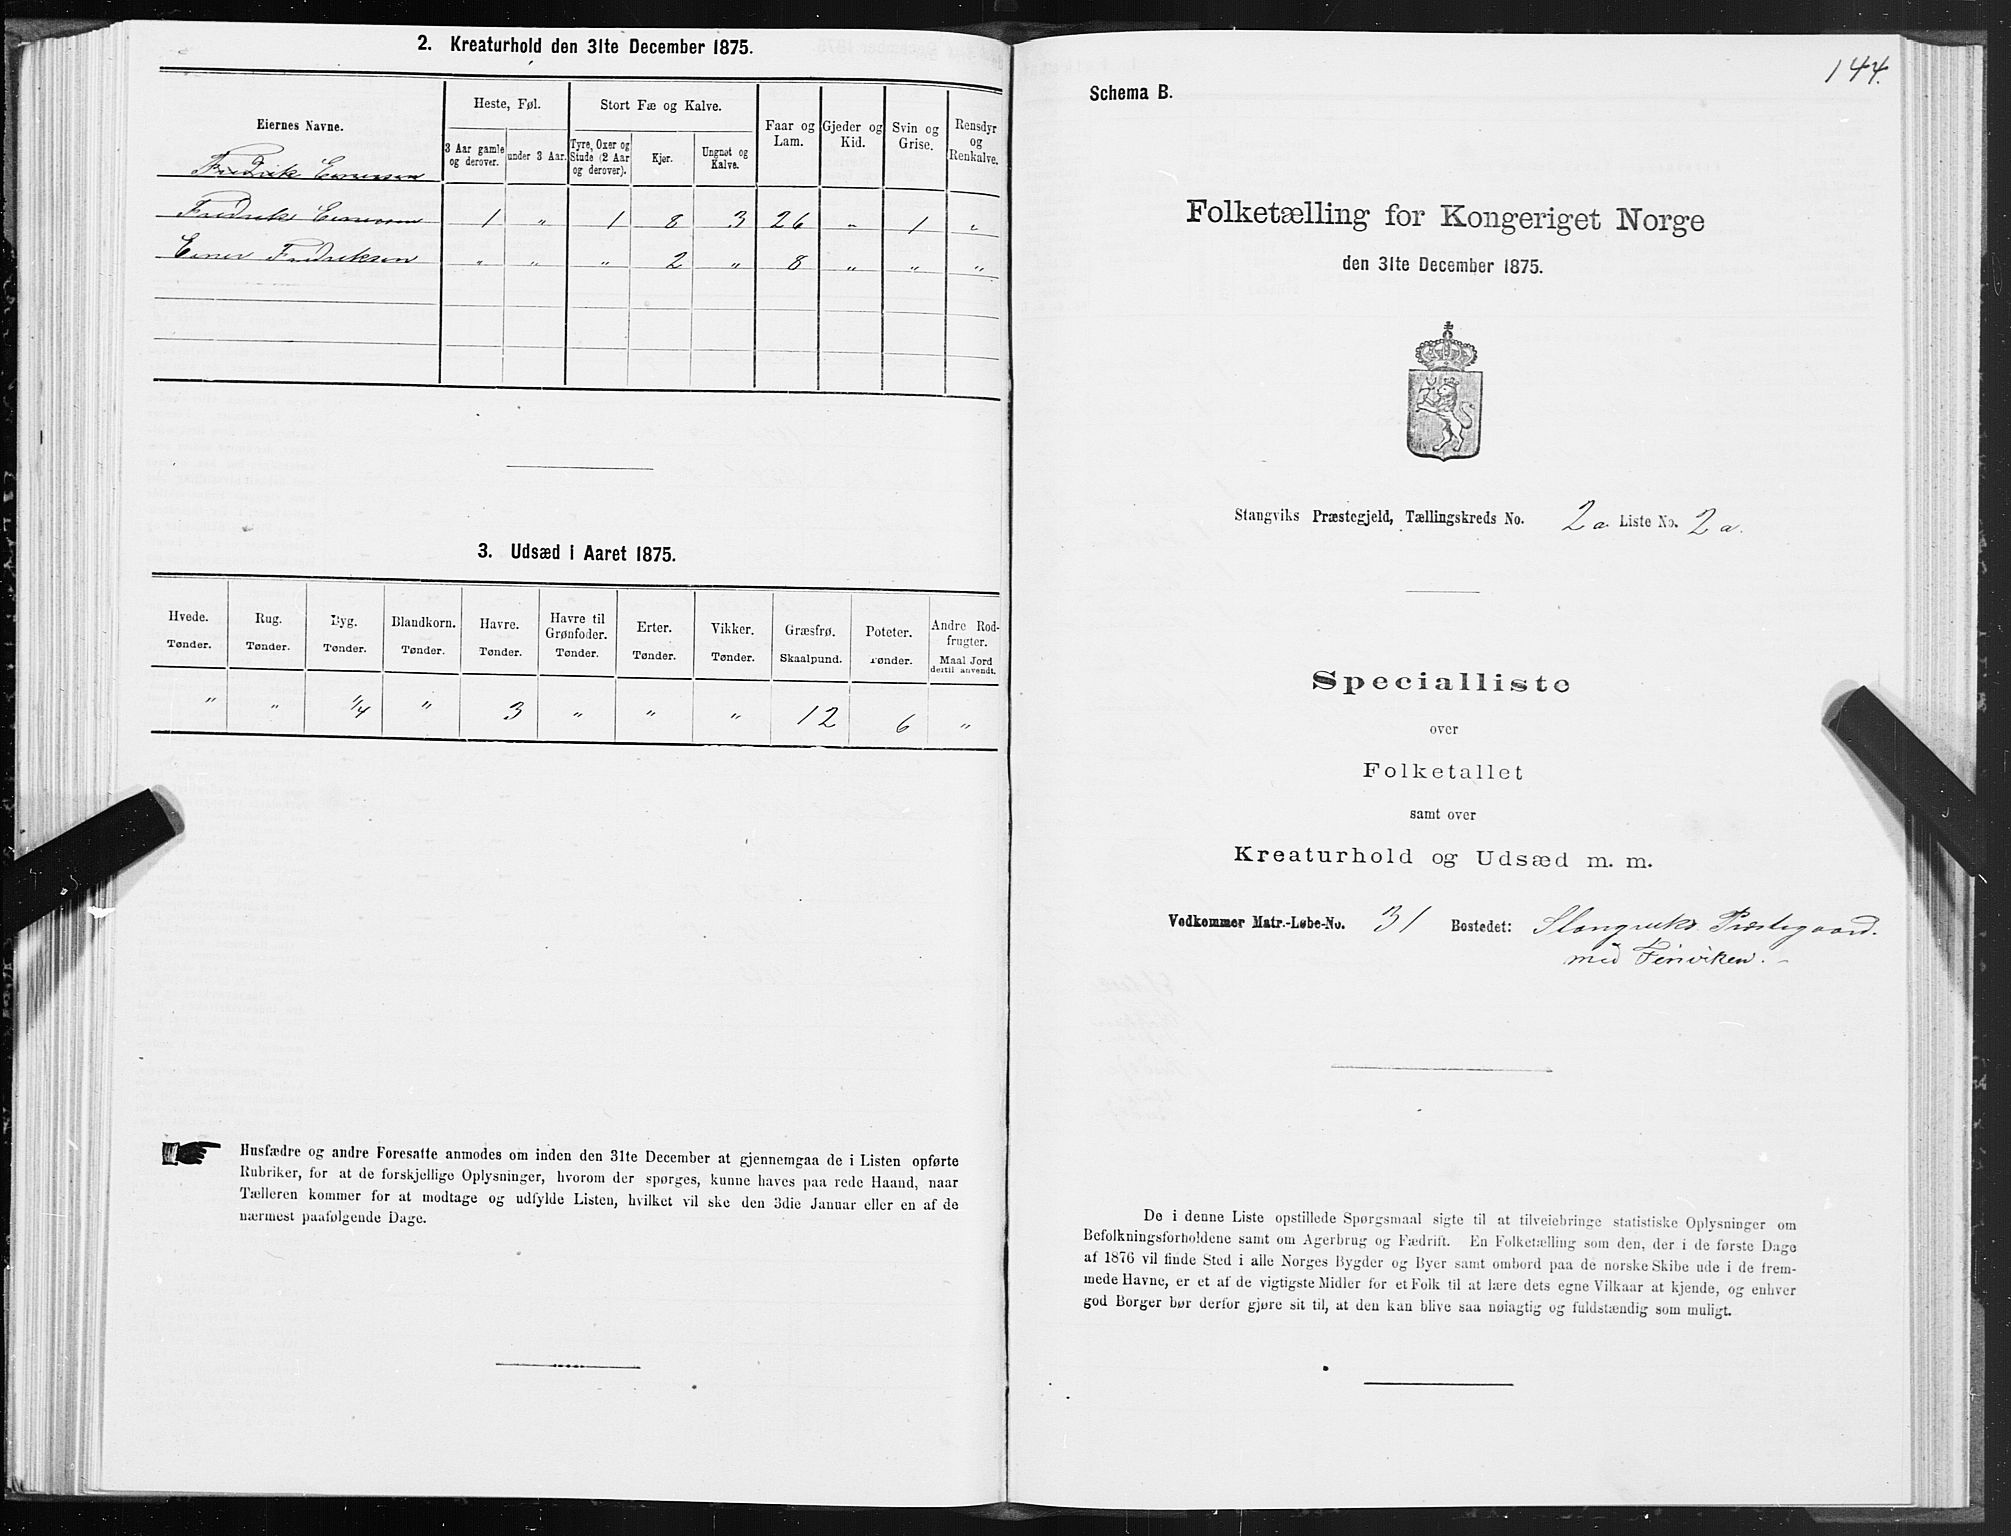 2. Kreaturhold den 31te December 1875.
Eiernes Navne.
Heste, Føl.
Stort Fæ og Kalve.
Faar og Lam.
Gjeder og Kid.
Svin og Grise.
Rensdyr og Renkalve.
3 Aar gamle og derover.
under 3 Aar.
Tyre, Oxer og Stude (2 Aar og derover).
Kjør.
Ungnøt og Kalve.
Fredrik Einersen
Fredrik Einersen 1 " 1 8 3 26 " 1 "
Einer Fredriksen " " " 2 " 8 " " "
3. Udsæd i Aaret 1875.
Hvede. Rug. Byg. Blandkorn. Havre. Havre til Grønfoder. Erter. Vikker. Græsfrø. Poteter. Andre Rodfrugter.
Tønder. Tønder. Tønder. Tønder. Tønder. Tønder. Tønder. Tønder. Skaalpund. Tønder. Maal Jord dertil anvendt.
" " 1/4 " 3 " " " 12 6 "
Husfædre og andre Foresatte anmodes om inden den 31te December at gjennemgaa de i Listen opførte
Rubriker, for at de forskjellige Oplysninger, hvorom der spørges, kunne haves paa rede Haand, naar
Tælleren kommer for at modtage og udfylde Listen, hvilket vil ske den 3die Januar eller en af de
nærmest paafølgende Dage.
144.
Schema B.
Folketælling for Kongeriget Norge
den 31te December 1875.
Stangviks Præstegjeld, Tællingskreds No. 2a Liste No. 2a.
Specialliste
over
Folketallet
samt over
Kreaturhold og Udsæd m. m.
Vedkommer Matr.-Løbe-No. 31 Bostedet: Stangviks Præstegaard.
med
De i denne Liste opstillede Spørgsmaal sigte til at tilveiebringe statistiske Oplysninger om
Befolkningsforholdene samt om Agerbrug og Fædrift. En Folketælling som den, der i de første Dage
af 1876 vil finde Sted i alle Norges Bygder og Byer samt ombord paa de norske Skibe ude i de frem-
mede Havne, er et af de vigtigste Midler for et Folk til at lære dets egne Vilkaar at kjende, og enhver
god Borger bør derfor gjøre sit til, at den kan blive saa nøiagtig og fuldstændig som muligt.